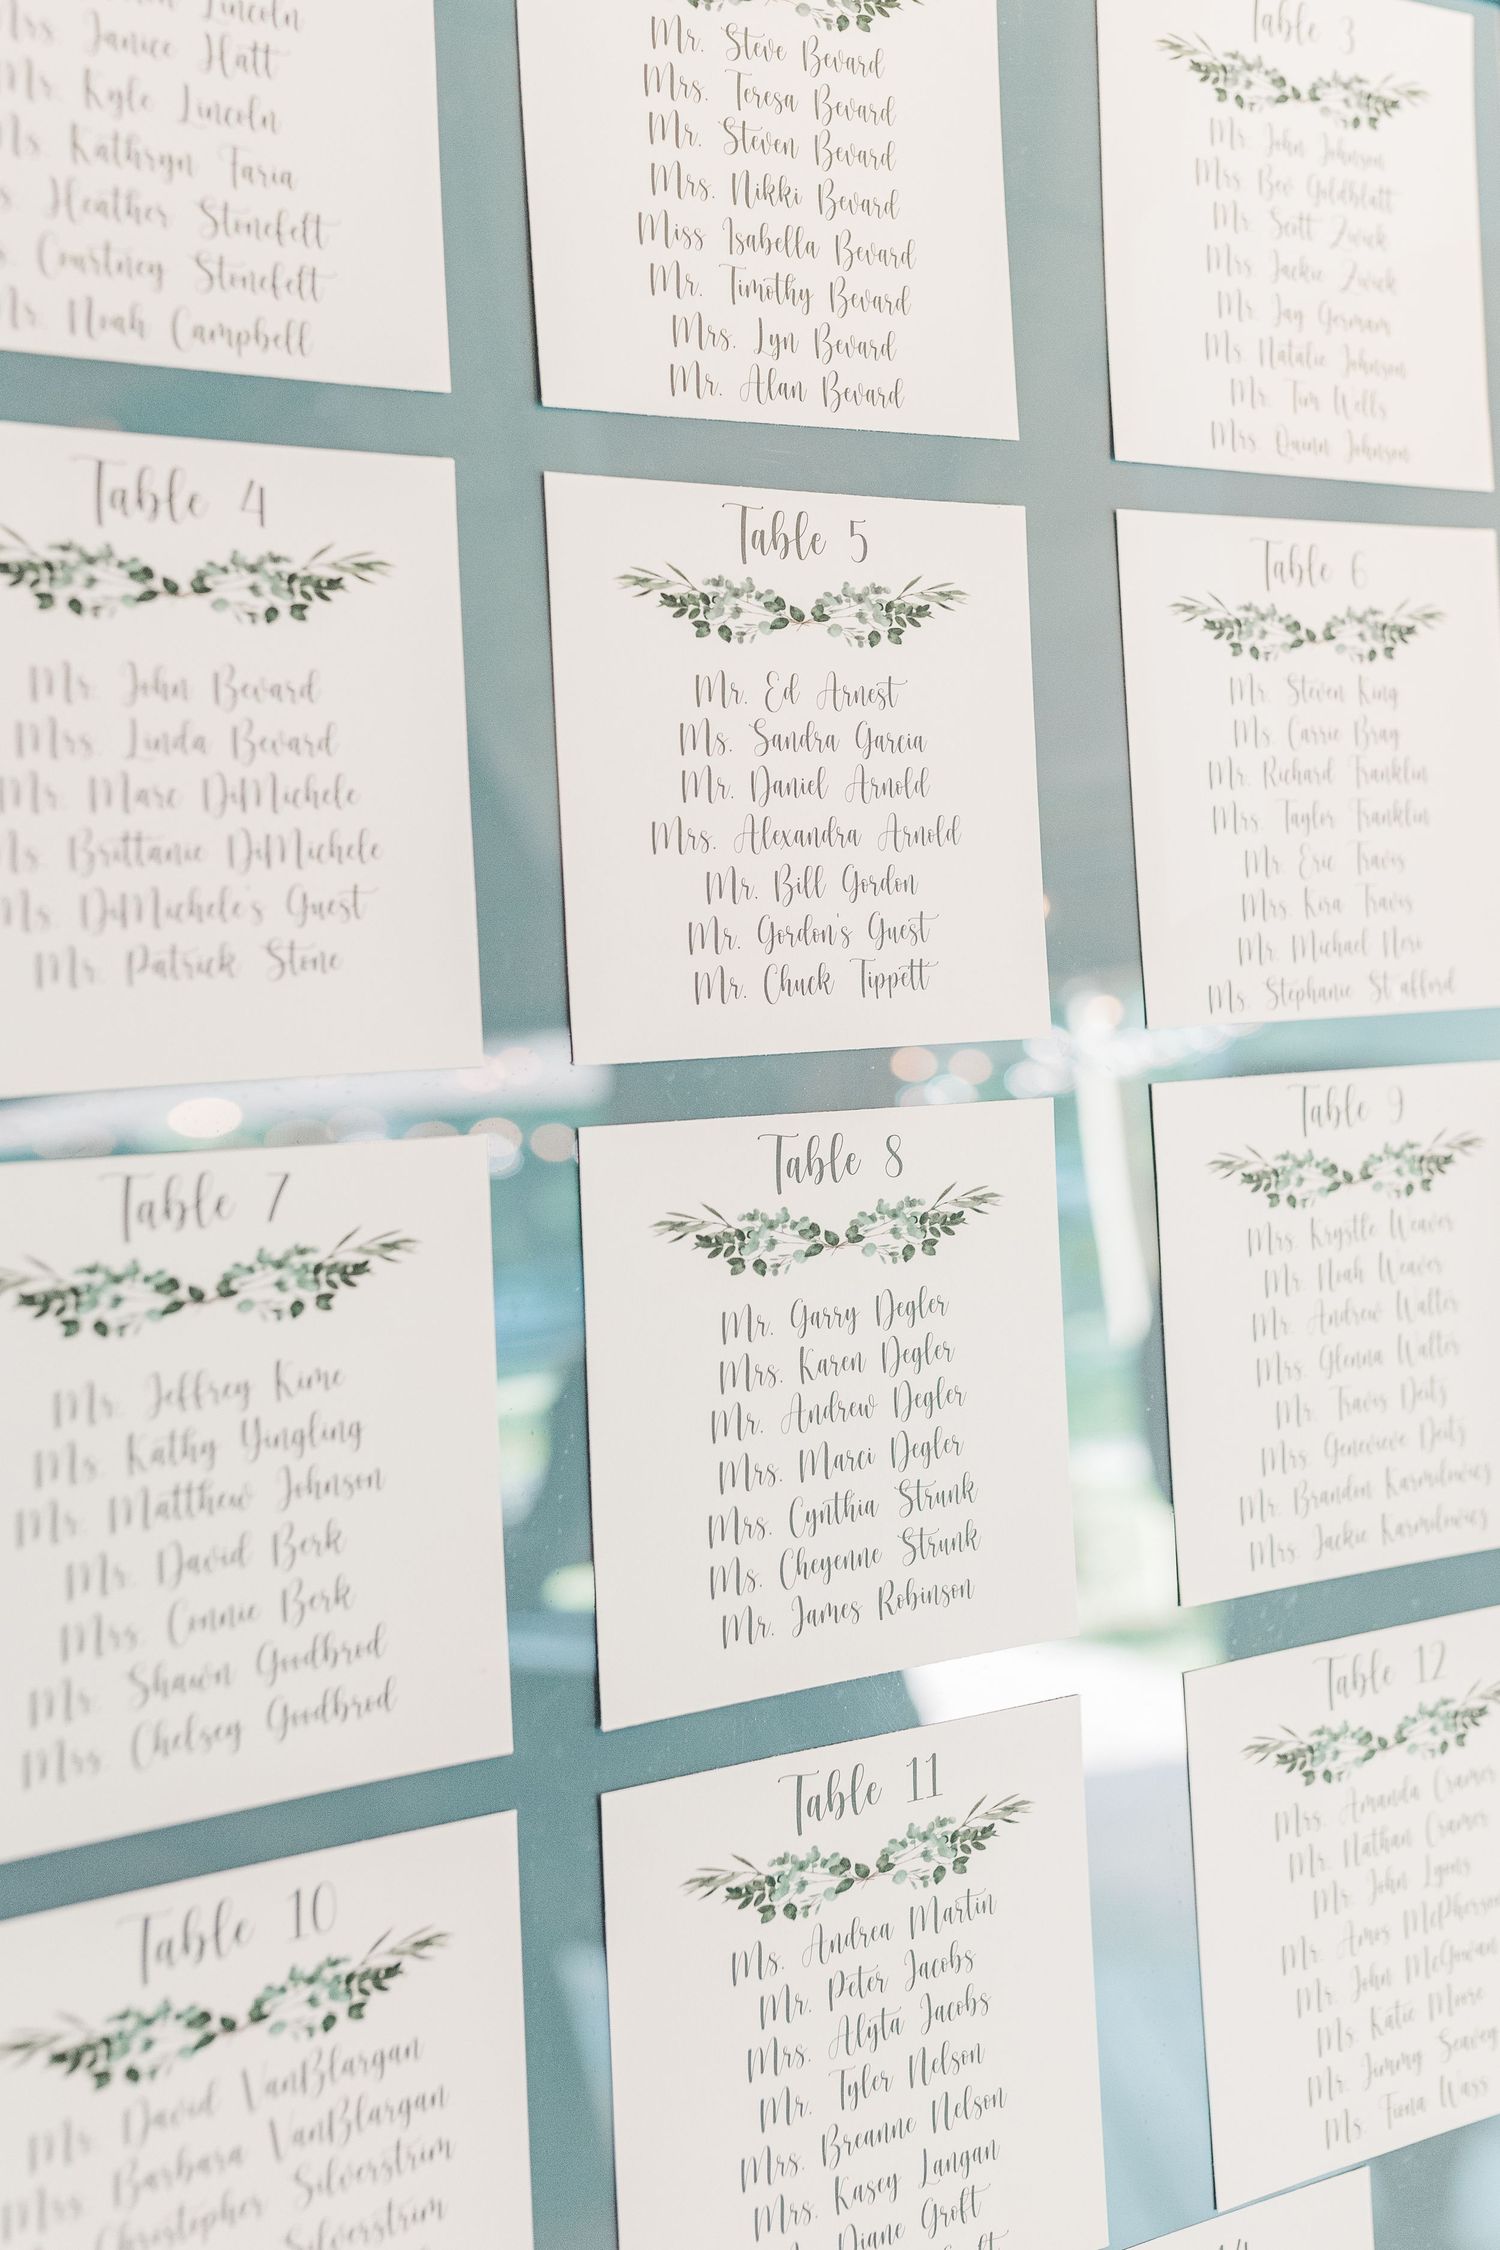 Lincoln
Mrs. Janice Hatt
Mr. Kyle Lincoln
Ms. Kathryn Faria
Heather Stonefelt
Courtney Stonefelt
Mr. Noah Campbell
Mr. Steve Bevard
Mrs. Teresa Bevard
Mr. Steven Bevard
Mrs. Nikki Bevard
Miss Isabella Bevard
Mr. Timothy Bevard
Mrs. Lyn Bevard
Mr. Alan Bevard
Table 3
Mr. John Johnson
Mrs. Bev Goldblatt
Mr. Scott Zwick
Mrs. Jackie Zwick
Mr. Jay Germam
Ms. Natalie Johnson
Mr. Tim Wells
Mrs. Quinn Johnson
Table 4
Mr. John Bevard
Mrs. Linda Bevard
Mr. Marc DiMichele
Ms. Brittanie DiMichele
Ms. DiMichele's Guest
Mr. Patrick Stone
Table 5
Mr. Ed Arnest
Ms. Sandra Garcia
Mr. Daniel Arnold
Mrs. Alexandra Arnold
Mr. Bill Gordon
Mr. Gordon's Guest
Mr. Chuck Tippett
Table 6
Mr. Steven King
Ms. Carrie Bray
Mr. Richard Franklin
Mrs. Taylor Franklin
Mr. Eric Travis
Mrs. Kira Travis
Mr. Michael Neri
Ms. Stephanie Stafford
Table 7
Mr. Jeffrey Kime
Ms. Kathy Yingling
Mr. Matthew Johnson
Mr. David Berk
Mrs. Connie Berk
Mr. Shawn Goodbrod
Mrs. Chelsey Goodbrod
Table 8
Mr. Garry Degler
Mrs. Karen Degler
Mr. Andrew Degler
Mrs. Marci Degler
Mrs. Cynthia Strunk
Ms. Cheyenne Strunk
Mr. James Robinson
Table 9
Mrs. Krystle Weaver
Mr. Noah Weaver
Mr. Andrew Walter
Mrs. Glenna Walter
Mr. Travis Deitz
Mrs. Genevieve Deitz
Mr. Brandon Karmilowicz
Mrs. Jackie Karmilowicz
Table 10
Mr. David VanBlargan
Mrs. Barbara VanBlargan
Christopher Silverstrim
Silverstrim
Table 11
Ms. Andrea Martin
Mr. Peter Jacobs
Mrs. Alyta Jacobs
Mr. Tyler Nelson
Mrs. Breanne Nelson
Mrs. Kasey Langan
Diane Groft
Table 12
Mrs. Amanda Cramer
Mr. Nathan Cramer
Mr. John Lyons
Mr. Amos McPherson
Mr. John McGowan
Ms. Katie Moore
Mr. Jimmy Seavey
Ms. Fiona Wass